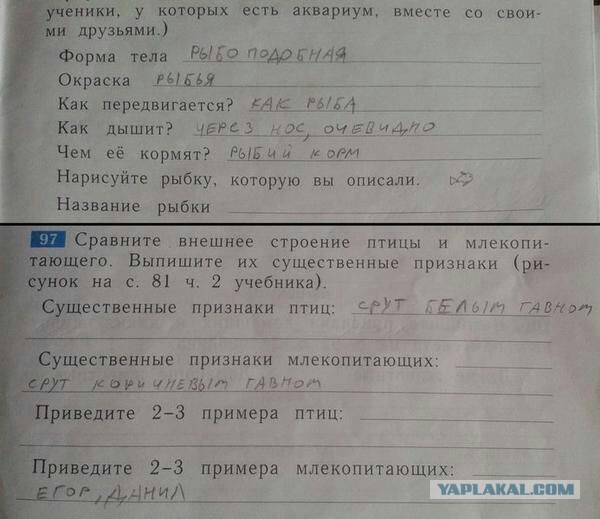 ученики, у которых есть аквариум, вместе со свои-
ми друзьями.)
Форма тела РЫБОПОДОБНАЯ
Окраска РЫБЬЯ
Как передвигается? КАК РЫБА
Как дышит? ЧЕРЕЗ НОС, ОЧЕВИДНО
Чем её кормят? РЫБИЙ КОРМ
Нарисуйте рыбку, которую вы описали.
Название рыбки
97 Сравните внешнее строение птицы и млекопи-
тающего. Выпишите их существенные признаки (ри-
сунок на с. 81 ч. 2 учебника).
Существенные признаки птиц: СРУТ БЕЛЫМ ГАВНОМ
Существенные признаки млекопитающих:
СРУТ КОРИЧНЕВЫМ ГАВНОМ
Приведите 2–3 примера птиц:
Приведите 2–3 примера млекопитающих:
ЕГОР, ДАНИЛ
YAPLAKAL.COM